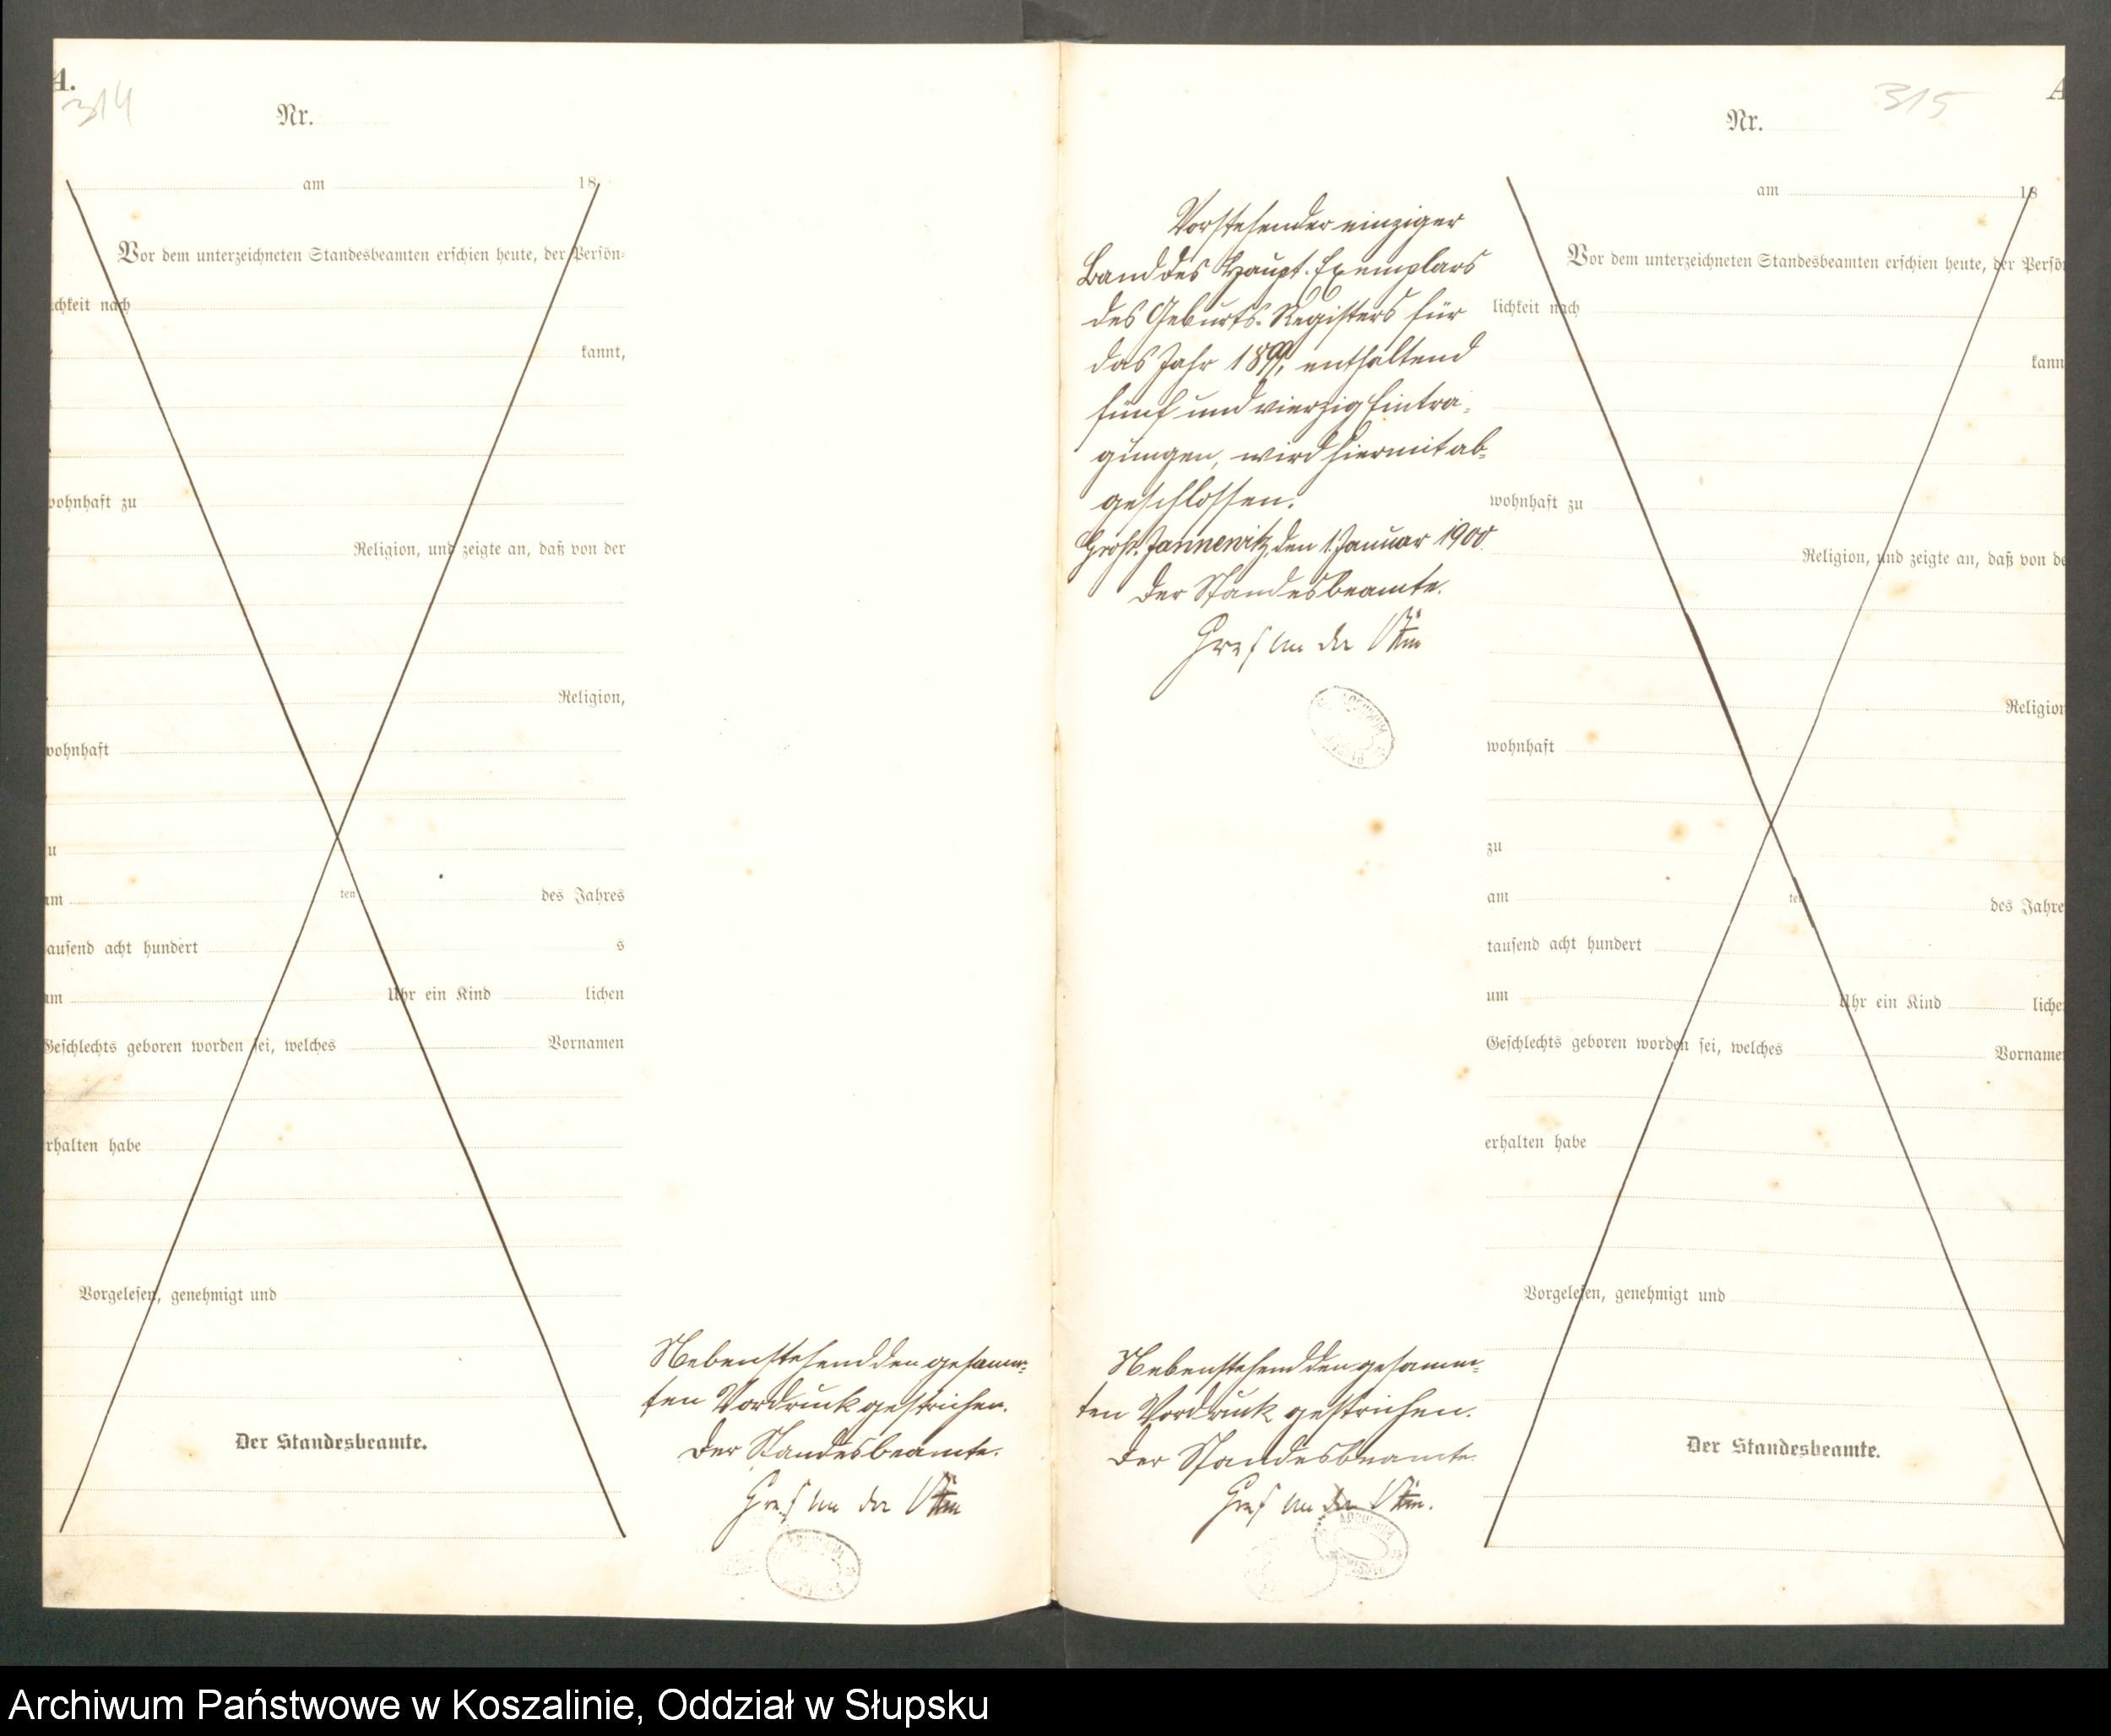 A.
314
Nr.
am 18
Vor dem unterzeichneten Standesbeamten erschien heute, der Persön-
chkeit nach
kannt,
wohnhaft zu
Religion, und zeigte an, daß von der
Religion,
wohnhaft
zu
am ten des Jahres
tausend acht hundert s
um Uhr ein Kind lichen
Geschlechts geboren worden sei, welches Vornamen
erhalten habe
Vorgelesen, genehmigt und
Der Standesbeamte.
Nebenstehend den gesamm-
ten Vordruck gestrichen.
Der Standesbeamte.
315
A
Nr.
Vorstehender einziger
Band des Haupt-Exemplars
des Geburts-Registers für
das Jahr 1899, enthaltend
fünf und vierzig Eintra-
gungen, wird hiermit ab-
geschlossen.
Groß. Jannewitz, den 1. Januar 1900.
Der Standesbeamte.
am 18
Vor dem unterzeichneten Standesbeamten erschien heute, der Persö
lichkeit nach
kann
wohnhaft zu
Religion, und zeigte an, daß von de
Religion
wohnhaft
zu
am ten des Jahre
tausend acht hundert
um Uhr ein Kind liche
Geschlechts geboren worden sei, welches Vorname
erhalten habe
Vorgelesen, genehmigt und
Der Standesbeamte.
Nebenstehend den gesamm-
ten Vordruck gestrichen.
Der Standesbeamte
Archiwum Państwowe w Koszalinie, Oddział w Słupsku